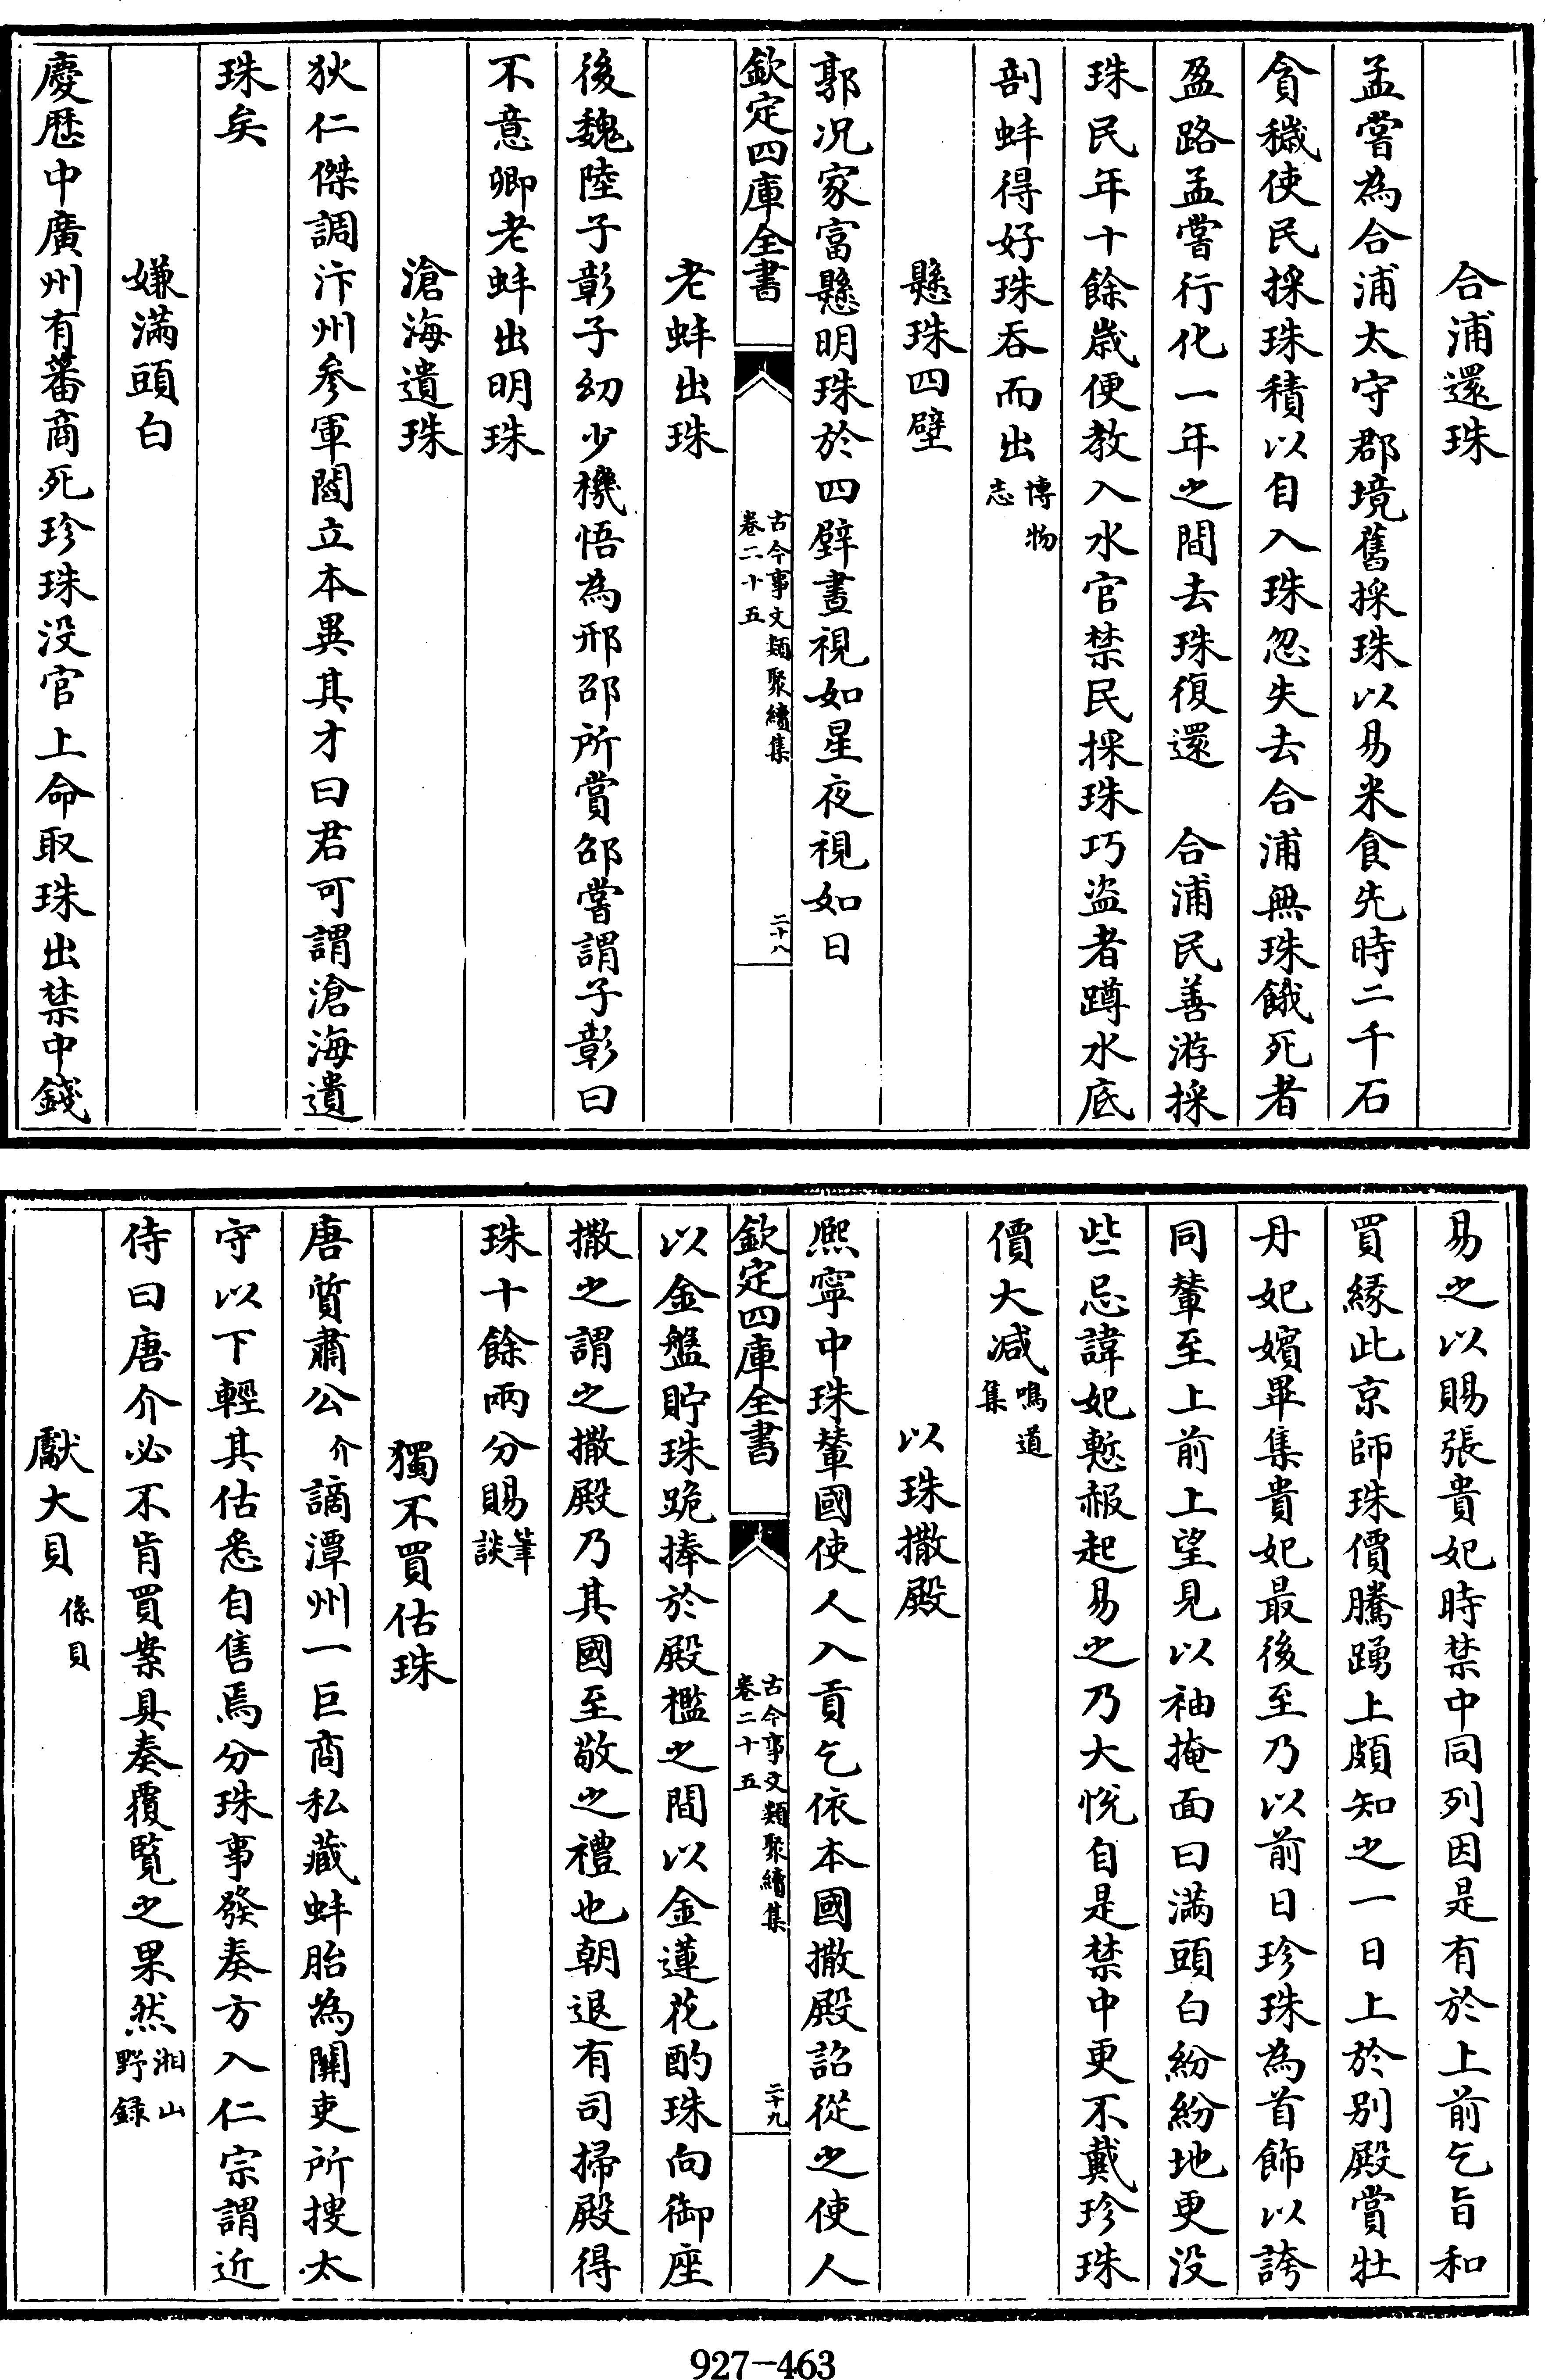 合浦還珠
孟嘗為合浦太守郡境舊採珠以易米食先時二千石
貪穢使民採珠積以自入珠忽失去合浦無珠餓死者
盈路孟嘗行化一年之間去珠復還　合浦民善游採
珠民年十餘歲便教入水官禁民採珠巧盜者蹲水底
剖蚌得好珠吞而出博物志
懸珠四壁
郭况家富懸明珠於四壁晝視如星夜視如日
欽定四庫全書
古今事文類聚續集
卷二十五
二十八
老蚌出珠
後魏陸子彰子幼少機悟為邢邵所賞邵嘗謂子彰曰
不意卿老蚌出明珠
滄海遺珠
狄仁傑調汴州參軍閻立本異其才曰君可謂滄海遺
珠矣
嫌滿頭白
慶厯中廣州有蕃商死珍珠没官上命取珠出禁中錢
易之以賜張貴妃時禁中同列因是有於上前乞旨和
買緣此京師珠價騰踴上頗知之一日上於别殿賞牡
丹妃嬪畢集貴妃最後至乃以前日珍珠為首飾以誇
同輩至上前上望見以袖掩面曰滿頭白紛紛地更没
些忌諱妃慙赧起易之乃大悅自是禁中更不戴珍珠
價大减鳴道集
以珠撒殿
熈寧中珠輦國使人入貢乞依本國撒殿詔從之使人
欽定四庫全書
古今事文類聚續集
卷二十五
二十九
以金盤貯珠跪捧於殿檻之間以金蓮花酌珠向御座
撒之謂之撒殿乃其國至敬之禮也朝退有司掃殿得
珠十餘兩分賜筆談
獨不買估珠
唐質肅公介謫潭州一巨商私藏蚌胎為關吏所搜太
守以下輕其估悉自售焉分珠事發奏方入仁宗謂近
侍曰唐介必不肯買案具奏覆覧之果然湘山野録
獻大貝係貝
927-463